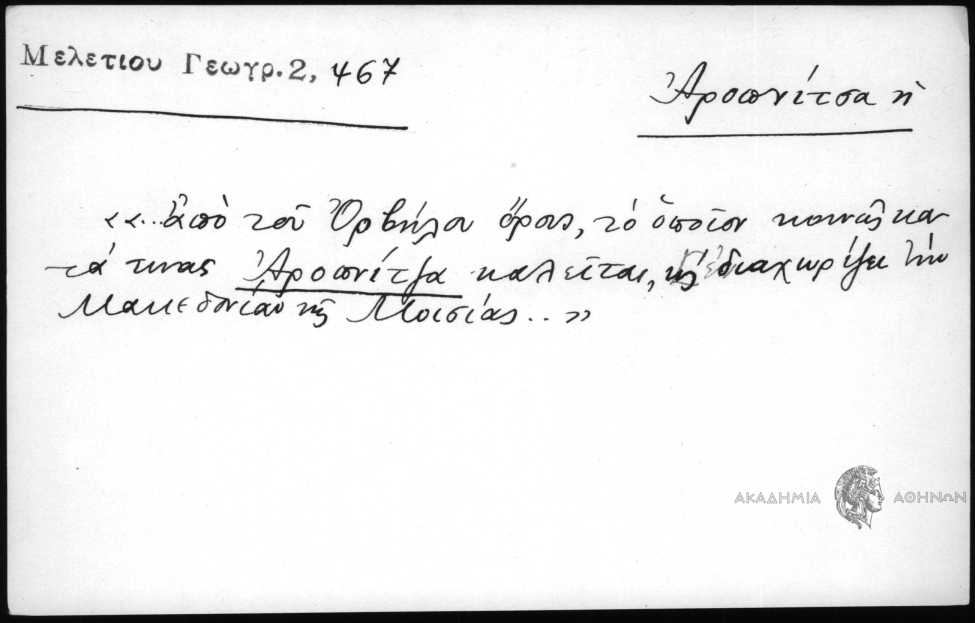 Μελετιου Γεωγρ.2, 467
Ἀροπνίτσα ἡ
«...ἀπὸ τοῦ Ὀρβήλου ὄρους, τὸ ὁποῖον κοινῶς κα-
τά τινας Ἀροπνίτζα καλεῖται, διαχωρίζει τὴν
Μακεδονίαν τῆς Μοισίας...»
ΑΚΑΔΗΜΙΑ ΑΘΗΝΩΝ